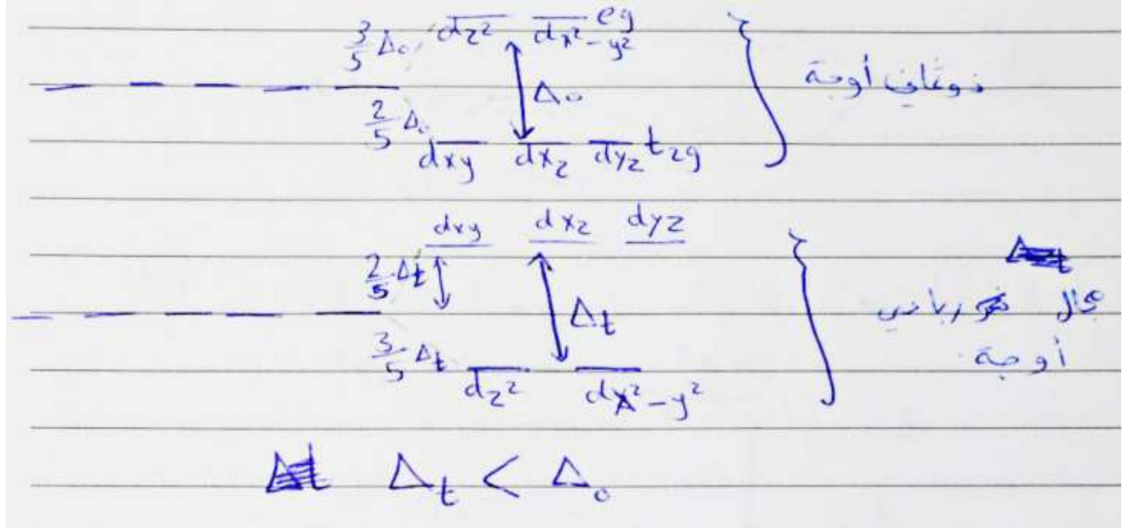 3/5 Δo dz² dx²-y² eg
Δo
ذو ثماني أوجه
2/5 Δo
dxy dxz dyz t2g
dxy dxz dyz
2/5 Δt
Δt
مجال رباعي
أوجه
3/5 Δt dz² dx²-y²
Δt < Δo